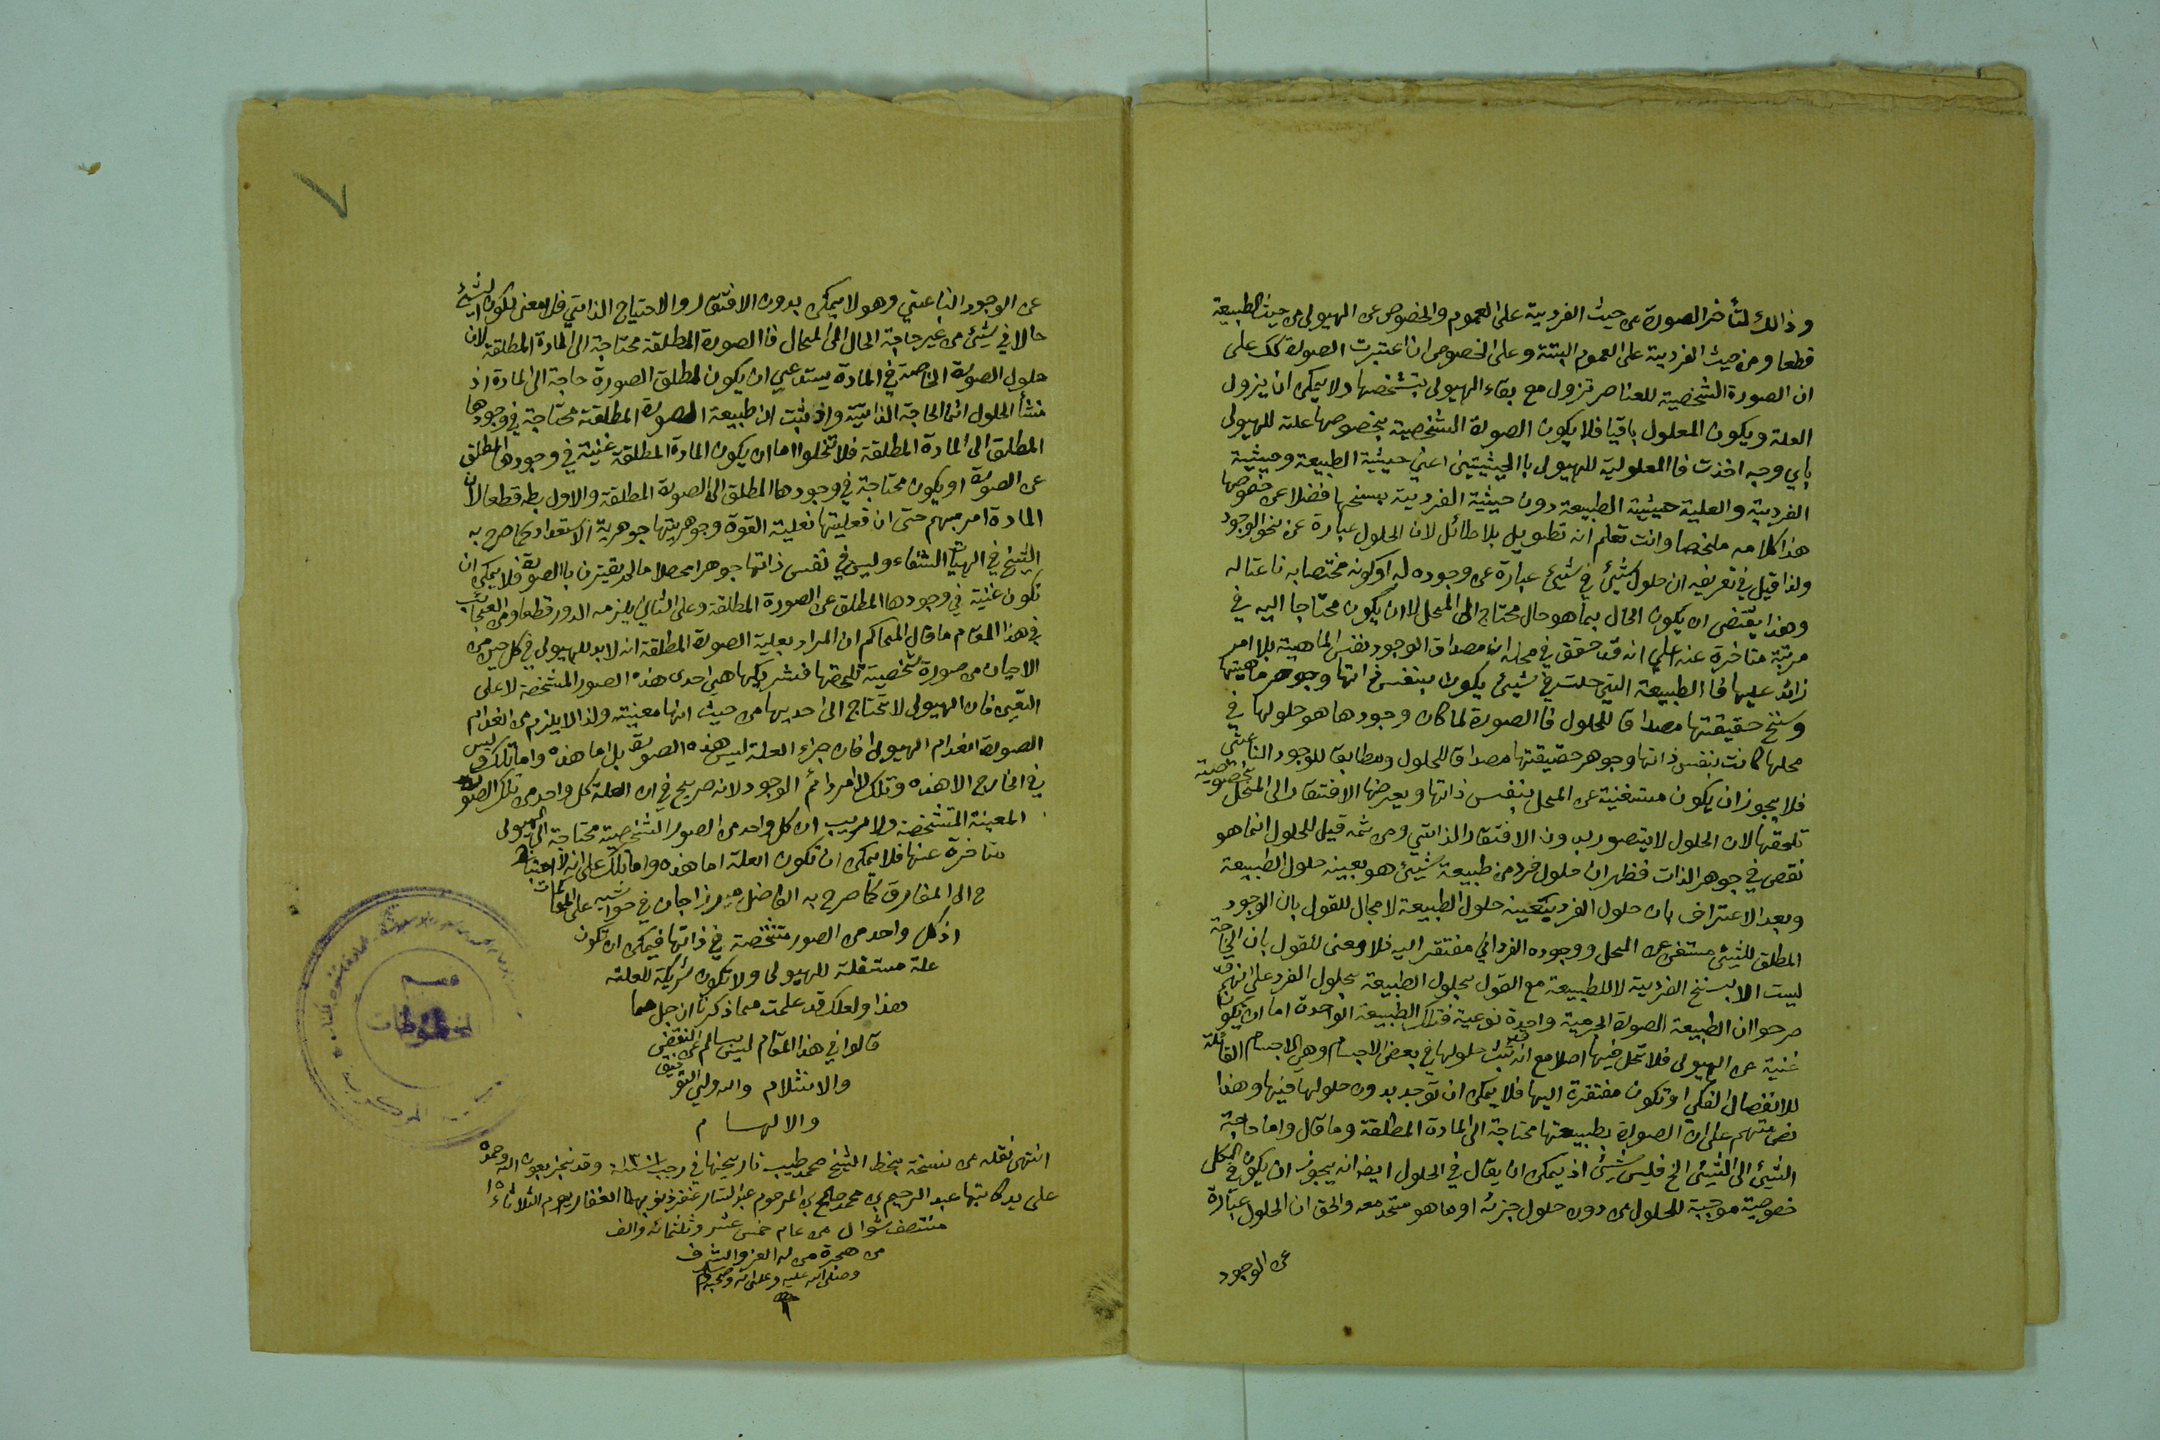 وذالك لتأخر الصورة من حيث الفردية على العموم والخصوص عن الهيولى من حيث الطبيعة
قطعا ومن حيث الفردية على العموم البتة وعلى الخصوص ان اعتبرت الصورة كك على
ان الصورة الشخصية للعناصر تزول مع بقاء الهيولى بتشخصها ولا يمكن ان يزول
العلة ويكون المعلول باقيا فلا يكون الصورة الشخصية بخصوصها علة للهيولى
باي وجه اخذت فا المعلولية للهيولى باالحيثيتين اعني حيثية الطبيعة وحيثية
الفردية والعلية حيثية الطبيعة دون حيثية الفردية بسنخها فضلا عن خصوصها
هذا كلامه ملخصا وانت تعلم انه تطويل بلا طائل لان الحلول عبارة عن نحو الوجود
ولذا قيل في تعريفه ان حلول شيئ في شيئ عبارة عن وجوده له او كونه مختصا به ناعتا له
وهذا يقتضى ان يكون الحال بما هو حال محتاج الى المحل لا ان يكون محتاجا اليه في
مرتبة متاخرة عنه اعلم انه قد حقق في محله ان مصداق الوجود نفس الماهية بلا امر
زائد عليها فا الطبيعة التي حلت في شيئ يكون بنفس ذاتها وجوهر ماهيتها
وسنخ حقيقتها مصداقا للحلول فا الصورة لما كان وجودها هو حلولها في
محلها كانت بنفس ذاتها وجوهر حقيقتها مصداقا للحلول ومطابقا للوجود الناعتي
فلا يجوز ان يكون مستغنية عن المحل بنفس ذاتها ويعرضها الافتقار الى المحل بخصوصية
تلحقها لان الحلول لا يتصور بدون الافتقار الذاتي ومن ثمه قيل للحلول انما هو
نقص في جوهر الذات فظهر ان حلول فرد من طبيعة شيئ هو بعينه حلول الطبيعة
وبعد الاعتراف بان حلول الفرد بعينه حلول الطبيعة لا مجال للقول بان الوجود
المطلق للشيئ مستغن عن المحل ووجوده الفرداني مفتقر اليه فلا معنى للقول بان الحاجة
ليست الا بسنخ الفردية لا للطبيعة مع القول بحلول الطبيعة بحلول الفرد على انهم قد
صرحوا ان الطبيعة الصورة الجرمية واحدة نوعية فتلك الطبيعة الواحدة اما ان تكون
غنية عن الهيولى فلا تحل فيها اصلا مع انه قد ثبت حلولها في بعض الاجسام وهي الاجسام القابلة
للانفصال الفكي او تكون مفتقرة اليها فلا يمكن ان توجد بدون حلولها فيها وهذا
نص منهم على ان الصورة بطبيعتها محتاجة الى المادة المطلقة وما قال واما حاجة
الشيئ الى الشيئ الخ فليس بشيئ اذ يمكن ان يقال في الحلول ايضا انه يجوز ان يكون في الكلى
خصوصية موجبة للحلول من دون حلول جزئه او ما هو متحد معه والحق ان الحلول عبارة
عن الوجود
عن الوجود الناعتي وهو لا يمكن بدون الافتقار والاحتياج الذاتي فلا معنى لكون الشيئ
حالا في شيئ من غير حاجة الحال الى المحال فا الصورة المطلقة محتاجة الى المادة المطلقة لان
حلول الصورة الخاصة في المادة يستدعي ان يكون لمطلق الصورة حاجة الى المادة اذ
منشأ الحلول انما الحاجة الذاتية واذ ثبت ان طبيعة الصورة المطلقة محتاجة في وجودها
المطلق الى المادة المطلقة فلا تخلوا اما ان يكون المادة المطلقة غنية في وجودها المطلق
عن الصورة او يكون محتاجة في وجودها المطلق الى الصورة المطلقة والاول بط قطعا لان
المادة امر مبهم حتى ان فعليتها فعلية القوة وجوهريتها جوهرية الاستعداد كما صرح به
الشيخ في الهيات الشفاء وليس في نفس ذاتها جوهرا محصلا ما لم يقترن باالصورة فلا يمكن ان
تكون غنية في وجودها المطلق عن الصورة المطلقة وعلى الثاني يلزمه الدور قطعا ومن العجائب
في هذا المقام ما قال المحاكم ان المراد بعلية الصورة المطلقة انه لا بد للهيولى في كل حين من
الاحيان من صورة شخصية تلحقها فشريكها هي احدى هذه الصور المشخصة لا على
التعين فان الهيولى لا تحتاج الى احديها من حيث انها معينة ولذا لا يلزم من انعدام
الصورة انعدام الهيولى فان جزء العلة ليس هذه الصورة بل اما هذه واما تلك وليس
في الخارج الا هذه وتلك لا امر دائم الوجود لانه صريح في ان العلة كل واحد من تلك الصور
المعينة المتشخصة ولا ريب ان كل واحد من الصور الشخصية محتاجة الى الهيولى
متاخرة عنها فلا يمكن ان تكون العلة اما هذه واما تلك على انه لا احتياج
ح الى المفارق كما صرح به الفاضل ميرزاجان في حواشيه على المحاكمات
اذ كل واحد من الصور متشخصة في ذاتها فيمكن ان تكون
علة مستقلة للهيولى ولا تكون شريكة للعلة
هذا ولعلك قد علمت مما ذكرنا ان جل مما
قالوا في هذا المقام ليس بسالم عن النقض
والانثلام والله ولي التوفيق
والالهــام
انتهى نقله من نسخة بخط الشيخ محمد طيب تاريخها في رجب سنة ١٣٠١ وقد نجز بعون الله وحمده
على يد كاتبها عبد الرحيم بن محمد صالح بن المرحوم عبد الستار غفر ذنوبهما الغفار يوم الثلاثاء
منتصف شوال من عام خمس عشر وثلثمائة والف
من هجرة من له العز والشرف
وصلى الله عليه وعلى آله وصحبه وسلم
قسم
المخطوطات